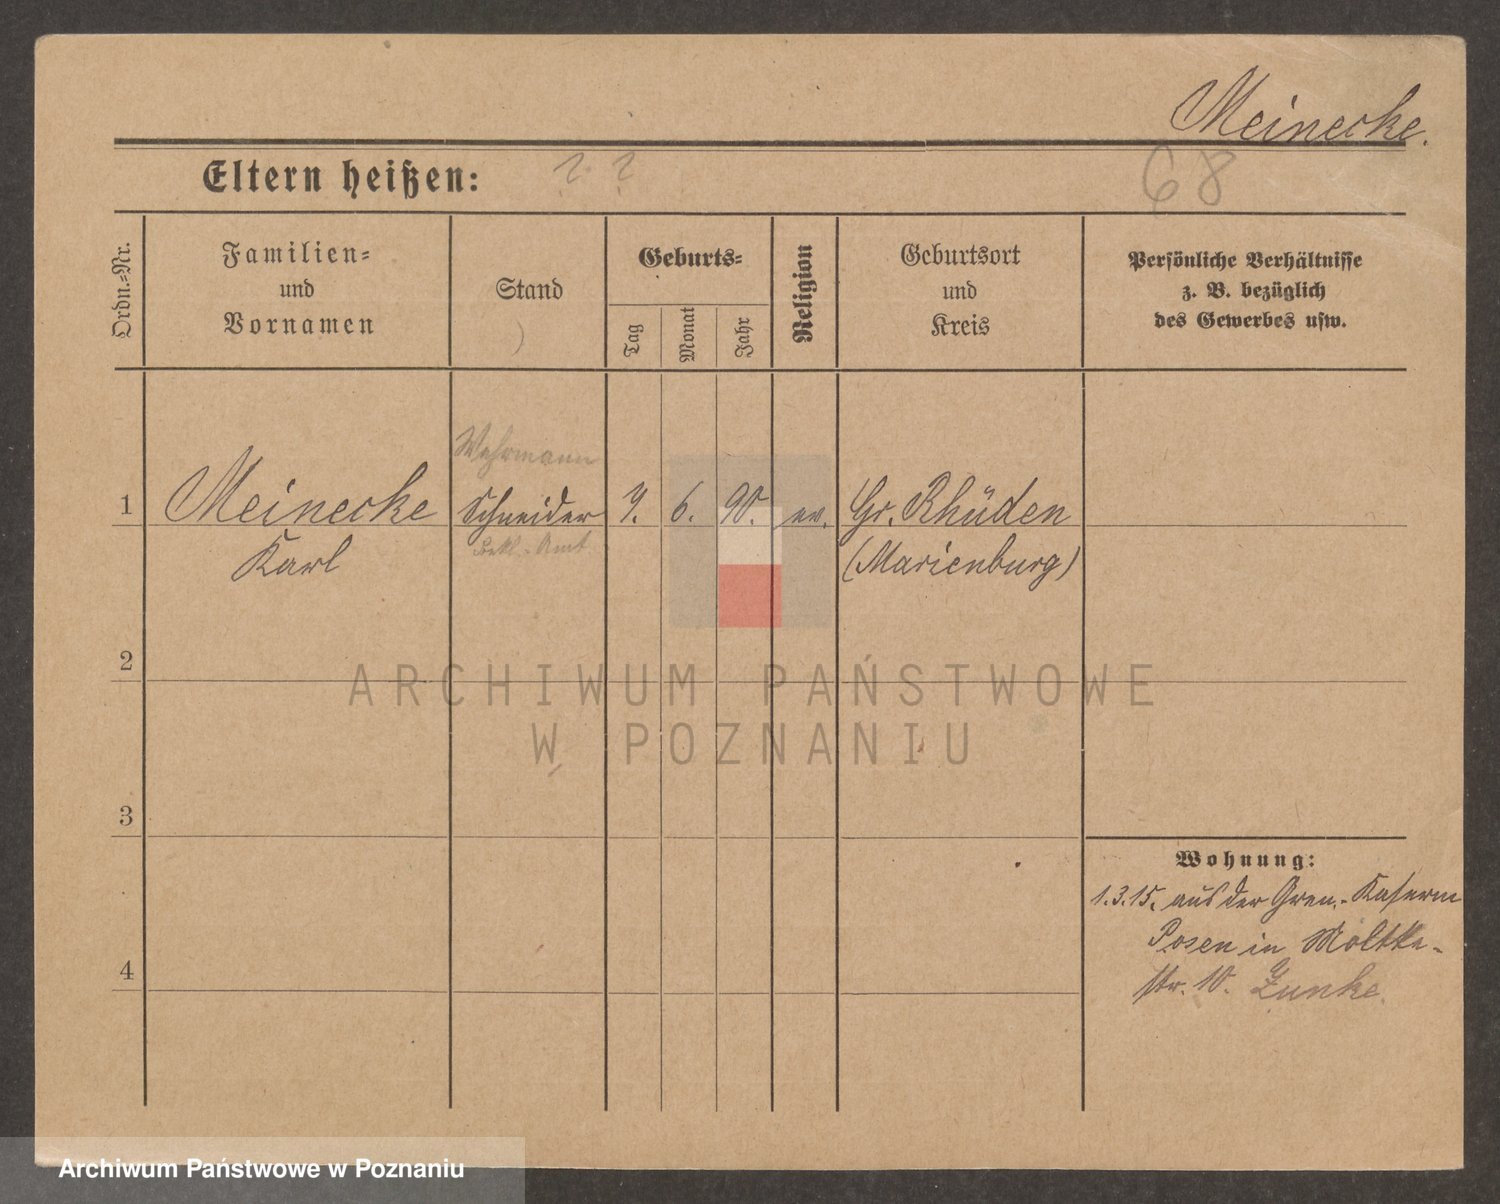 Meinecke.
Eltern heißen: ? ?
68
Ordn.-Nr.
Familien-
und
Vornamen
Stand
Geburts-
Tag
Monat
Jahr
Religion
Geburtsort
und
Kreis
Persönliche Verhältnisse
z. B. bezüglich
des Gewerbes usw.
Wehrmann
1 Meinecke Schneider 7. 6. 90. ev. Gr. Rhüden
Karl Bekl.-Amt (Marienburg)
2
ARCHIWUM PAŃSTWOWE
W POZNANIU
3
Wohnung:
1.3.15. aus der Gren.-Kaserne
Posen in Moltke-
4
str. 10. Zunke.
Archiwum Państwowe w Poznaniu